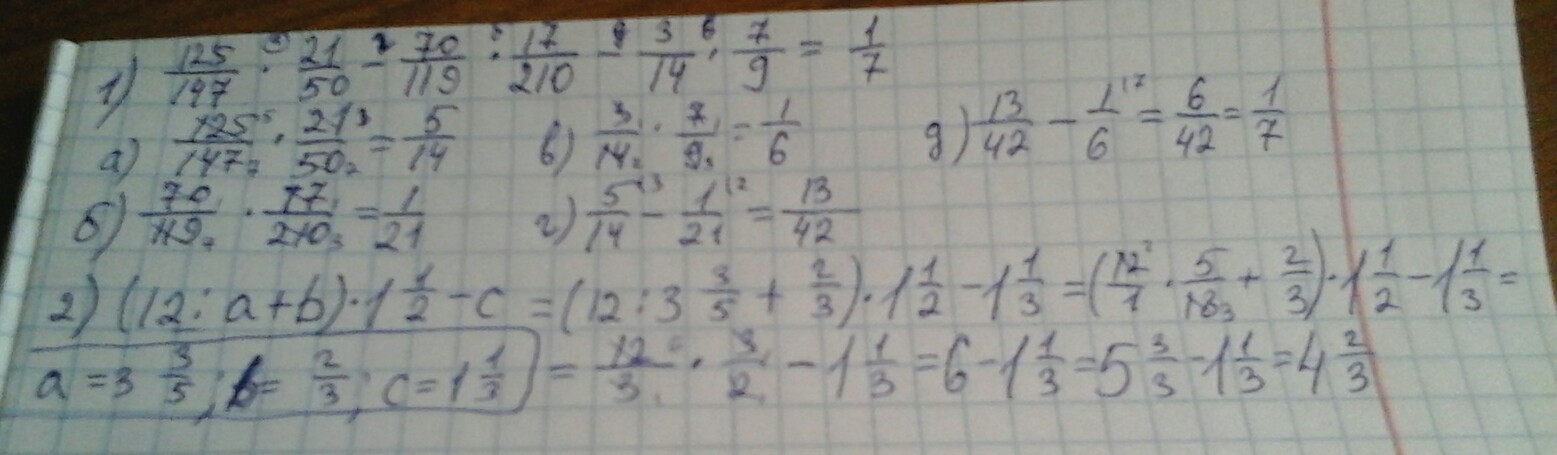 1) 125/147 · 21/50 - 70/119 · 17/210 - 3/14 · 7/9 = 1/7
а) 125/147 · 21/50 = 5/14 в) 3/14 · 7/9 = 1/6 д) 13/42 - 1/6 = 6/42 = 1/7
б) 70/119 · 17/210 = 1/21 г) 5/14 - 1/21 = 13/42
2) (12 : a + b) · 1 1/2 - c = (12 : 3 3/5 + 2/3) · 1 1/2 - 1 1/3 = (12/1 · 5/18 + 2/3) · 1 1/2 - 1 1/3 =
a = 3 3/5; b = 2/3; c = 1 1/3 = 12/3 · 3/2 - 1 1/3 = 6 - 1 1/3 = 5 3/3 - 1 1/3 = 4 2/3